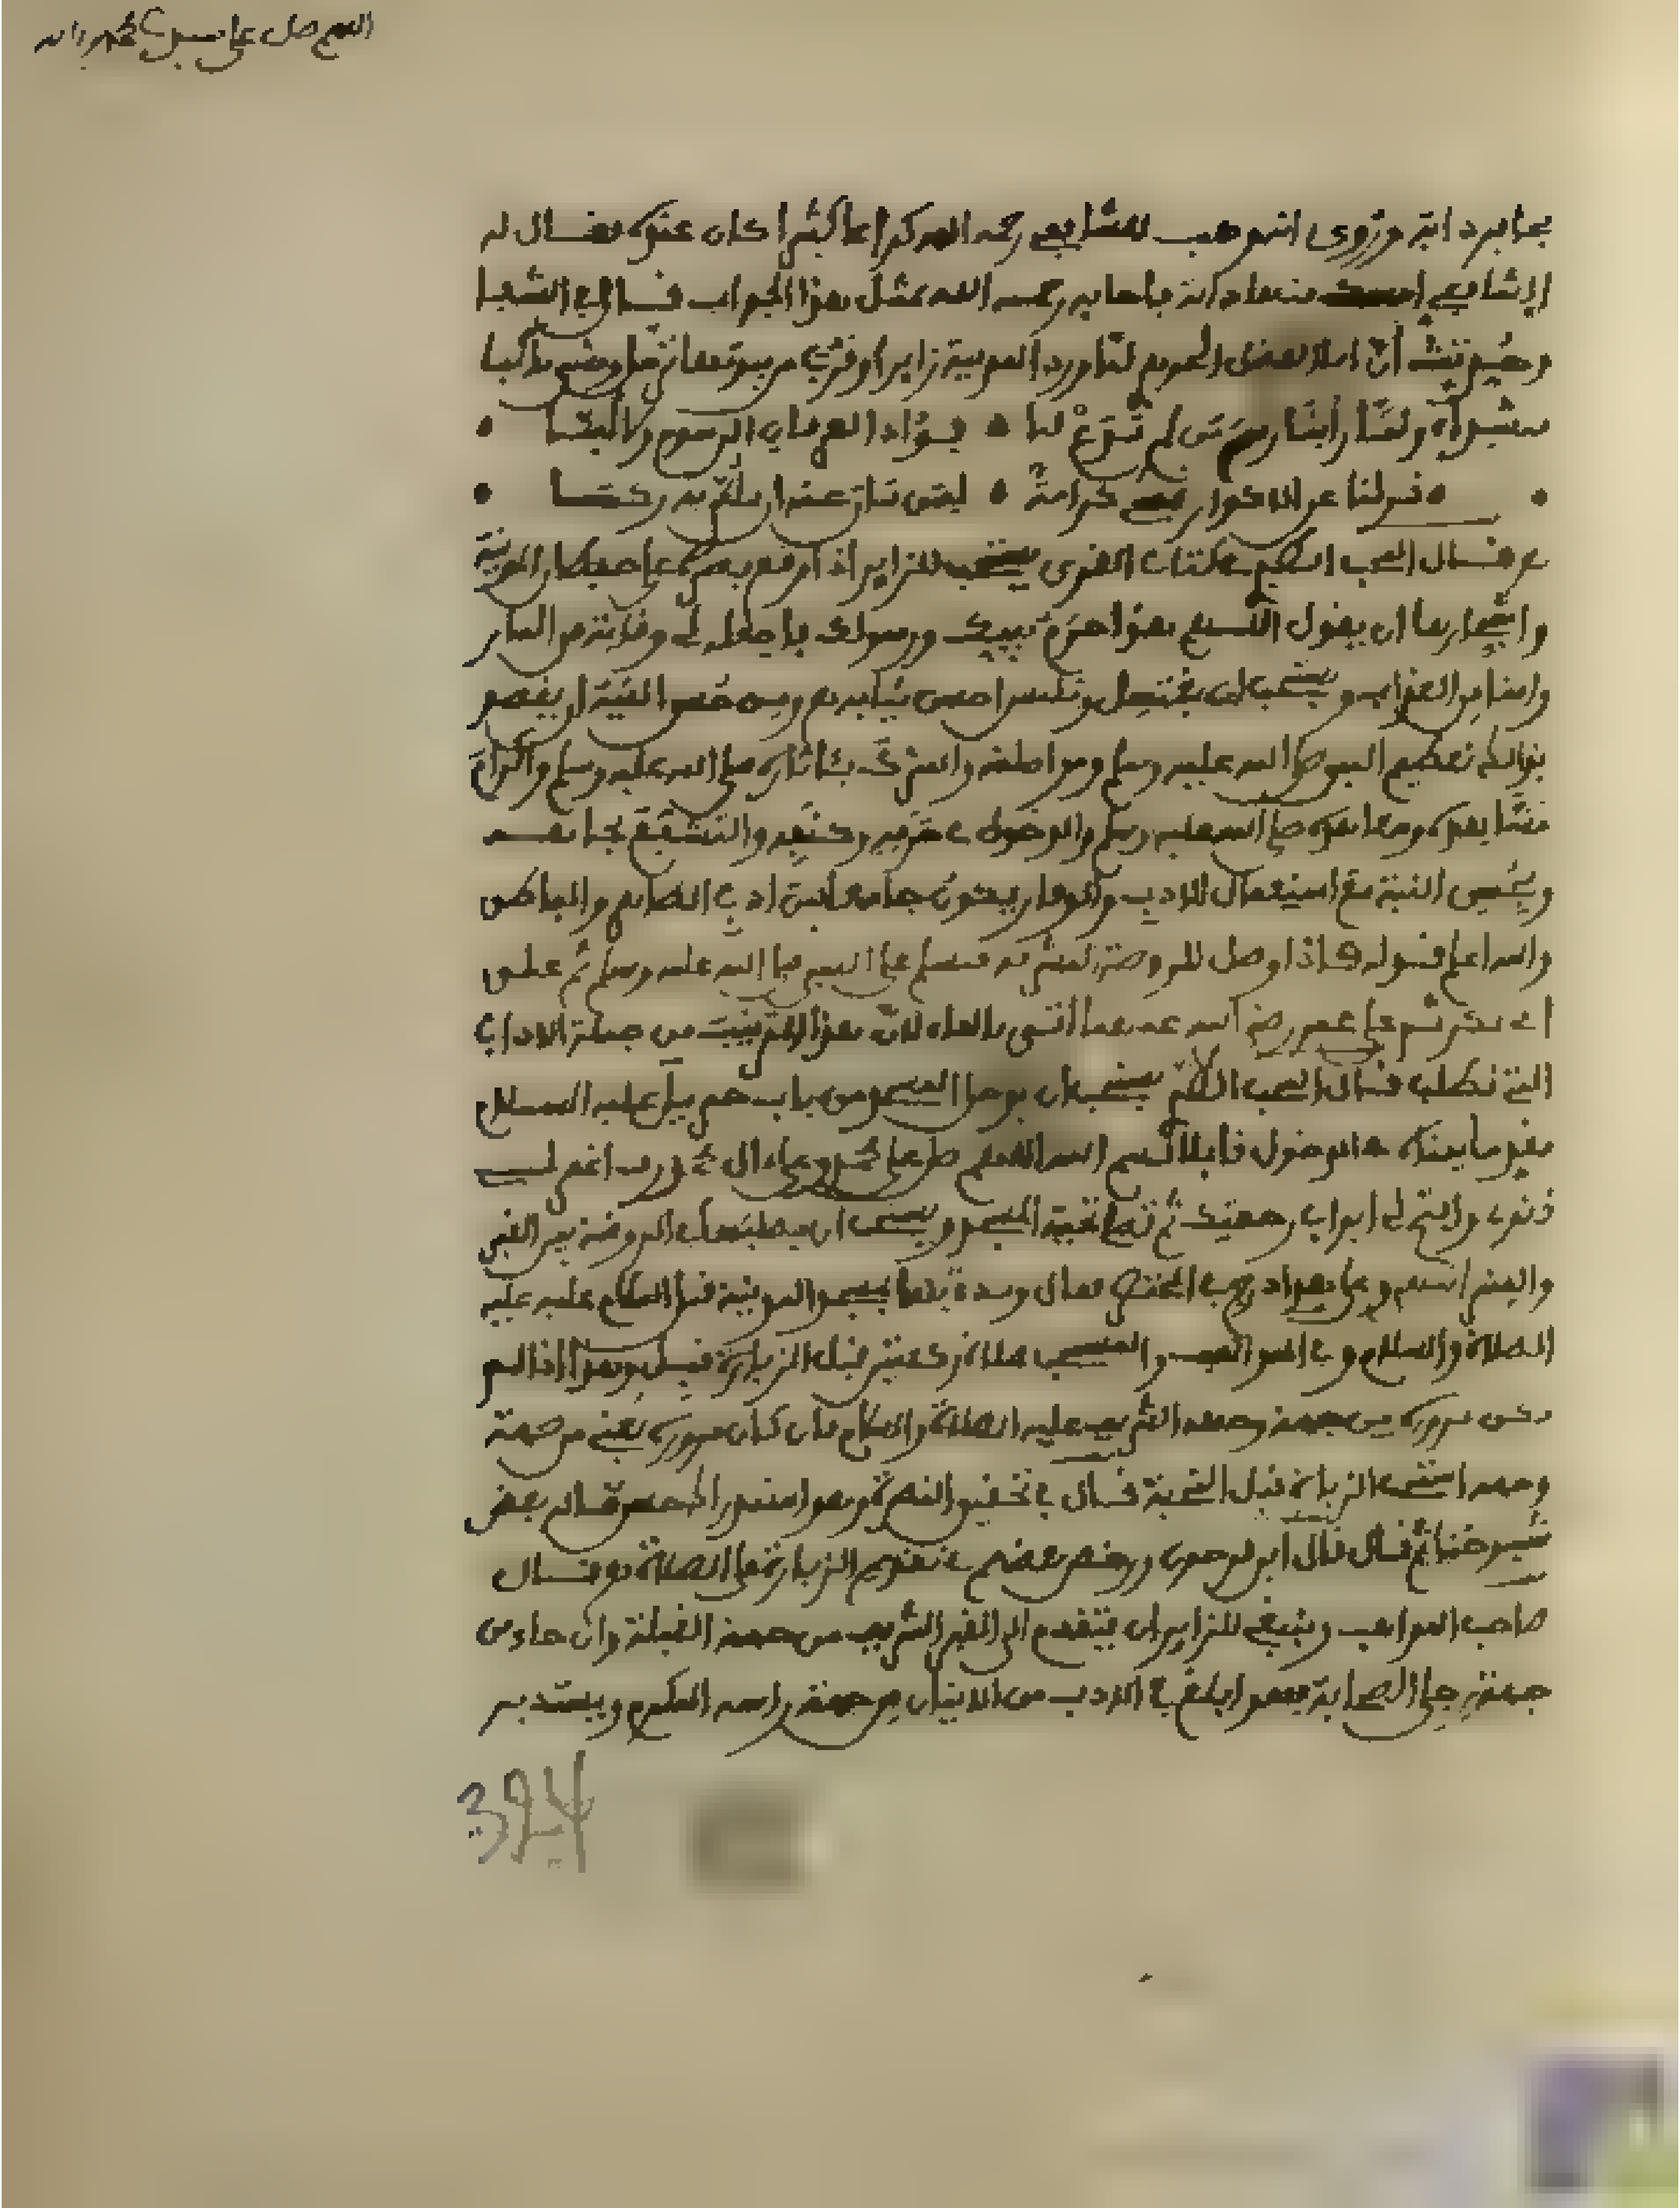 اللهم صل على سيدنا محمد واله
بحابر دابة وروى انه وهب للشابعي رحمه الله كراعا كثيرا كان عنده فقال له
الشابعي امسك منها دابة باجابه رحمه الله بمثل هذا الجواب قال في الشفا
وحدثت ان ابا الفضل الجوهري لما ورد المدينة زايرا وقرب من بيوتها ترجل ومشى باكيا
منشدا ولما رأينا رسم من لم يدع لنا • فؤادا لعرفان الرسوم ولا لبا •
• نزلنا عن الاكوار نمشي كرامة • لمن بان عنه ان نلم به ركبا •
وقال المحب الطبري يستحب للزاير اذا وقع بصره على حيطان المدينة
واشجارها ان يقول اللهم هذا حرم نبيك ورسولك فاجعله لي وقاية من النار
وامنا من العذاب ويستحب ان يغتسل ويلبس احسن ثيابه ومن حسن النية ان يقصد
بذلك تعظيم النبي صلى الله عليه وسلم ومواصلته والتبرك بآثاره صلى الله عليه وسلم واكرام
مشاهده ومعاهده صلى الله عليه وسلم والدخول في حزبه وكنفه والتشفع بجاهه
ويحسن النية مع استعمال الادب والوقار يكون جامعا بين ادب الظاهر والباطن
والله اعلم قوله فاذا وصل للروضة المشرفة فيسلم على النبي صلى الله عليه وسلم ثم على
ابي بكر ثم على عمر رضي الله عنهما اتى بالفاء لان هذا الترتيب من جملة الاداب
التي تطلب قال المحب يستحب ان يدخل المسجد من باب جبريل عليه السلام
عند الدخول قايلا بسم الله اللهم صل على محمد وعلى ال محمد رب اغفر لي
ذنوبي وافتح لي ابواب رحمتك ثم تحية المسجد ويستحب ان الروضة بين القبر
والمنبر قال وبدء بمسجد المدينة قبل السلام عليه عليه
الصلاة والسلام وفي المواهب والمستحب صلاة ركعتين قبل الزيارة قيل وهذا اذا لم
يكن مروره من جهة وجهه الشريف عليه الصلاة والسلام فان كان مروره يعني من جهة
وجهه استحب الزيارة قبل التحية قال في تحقيق النصرة وهو استدراك حسن قاله بعض
شيوخنا ثم قال قال ابن فرحون ورخص بعضهم في تقديم الزيارة على الصلاة وقال
صاحب المواهب وينبغي للزاير ان يتقدم الى القبر الشريف من جهة القبلة وان جاء من
جهة رجلي الصحابة فهو ابلغ في الادب من الاتيان من جهة راسه المكرم ويستدبر